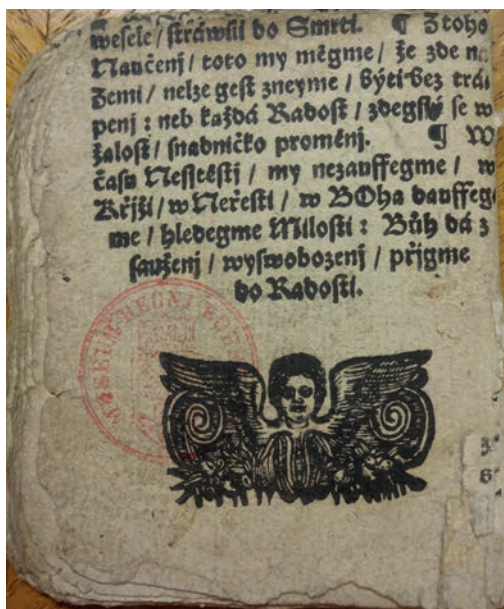 wesele / sträwili do Smrti. ¶ Z toho
Naučenj / toto myměgme / že zde na
Zemi / nelze gest zneyme / býti bez trá
penj : neb každá Radost / zdegssý se w
žalost / snadničko proměnj. ¶ W
času Nesstěstj / my nezauffegme / w
Křjži / w Neřesti / w BOha dauffeg
me / hledegme Milosti : Bůh dá z
sauženj / wyswobozenj / přigme
do Radosti.
MUSEUM REGNI BOH